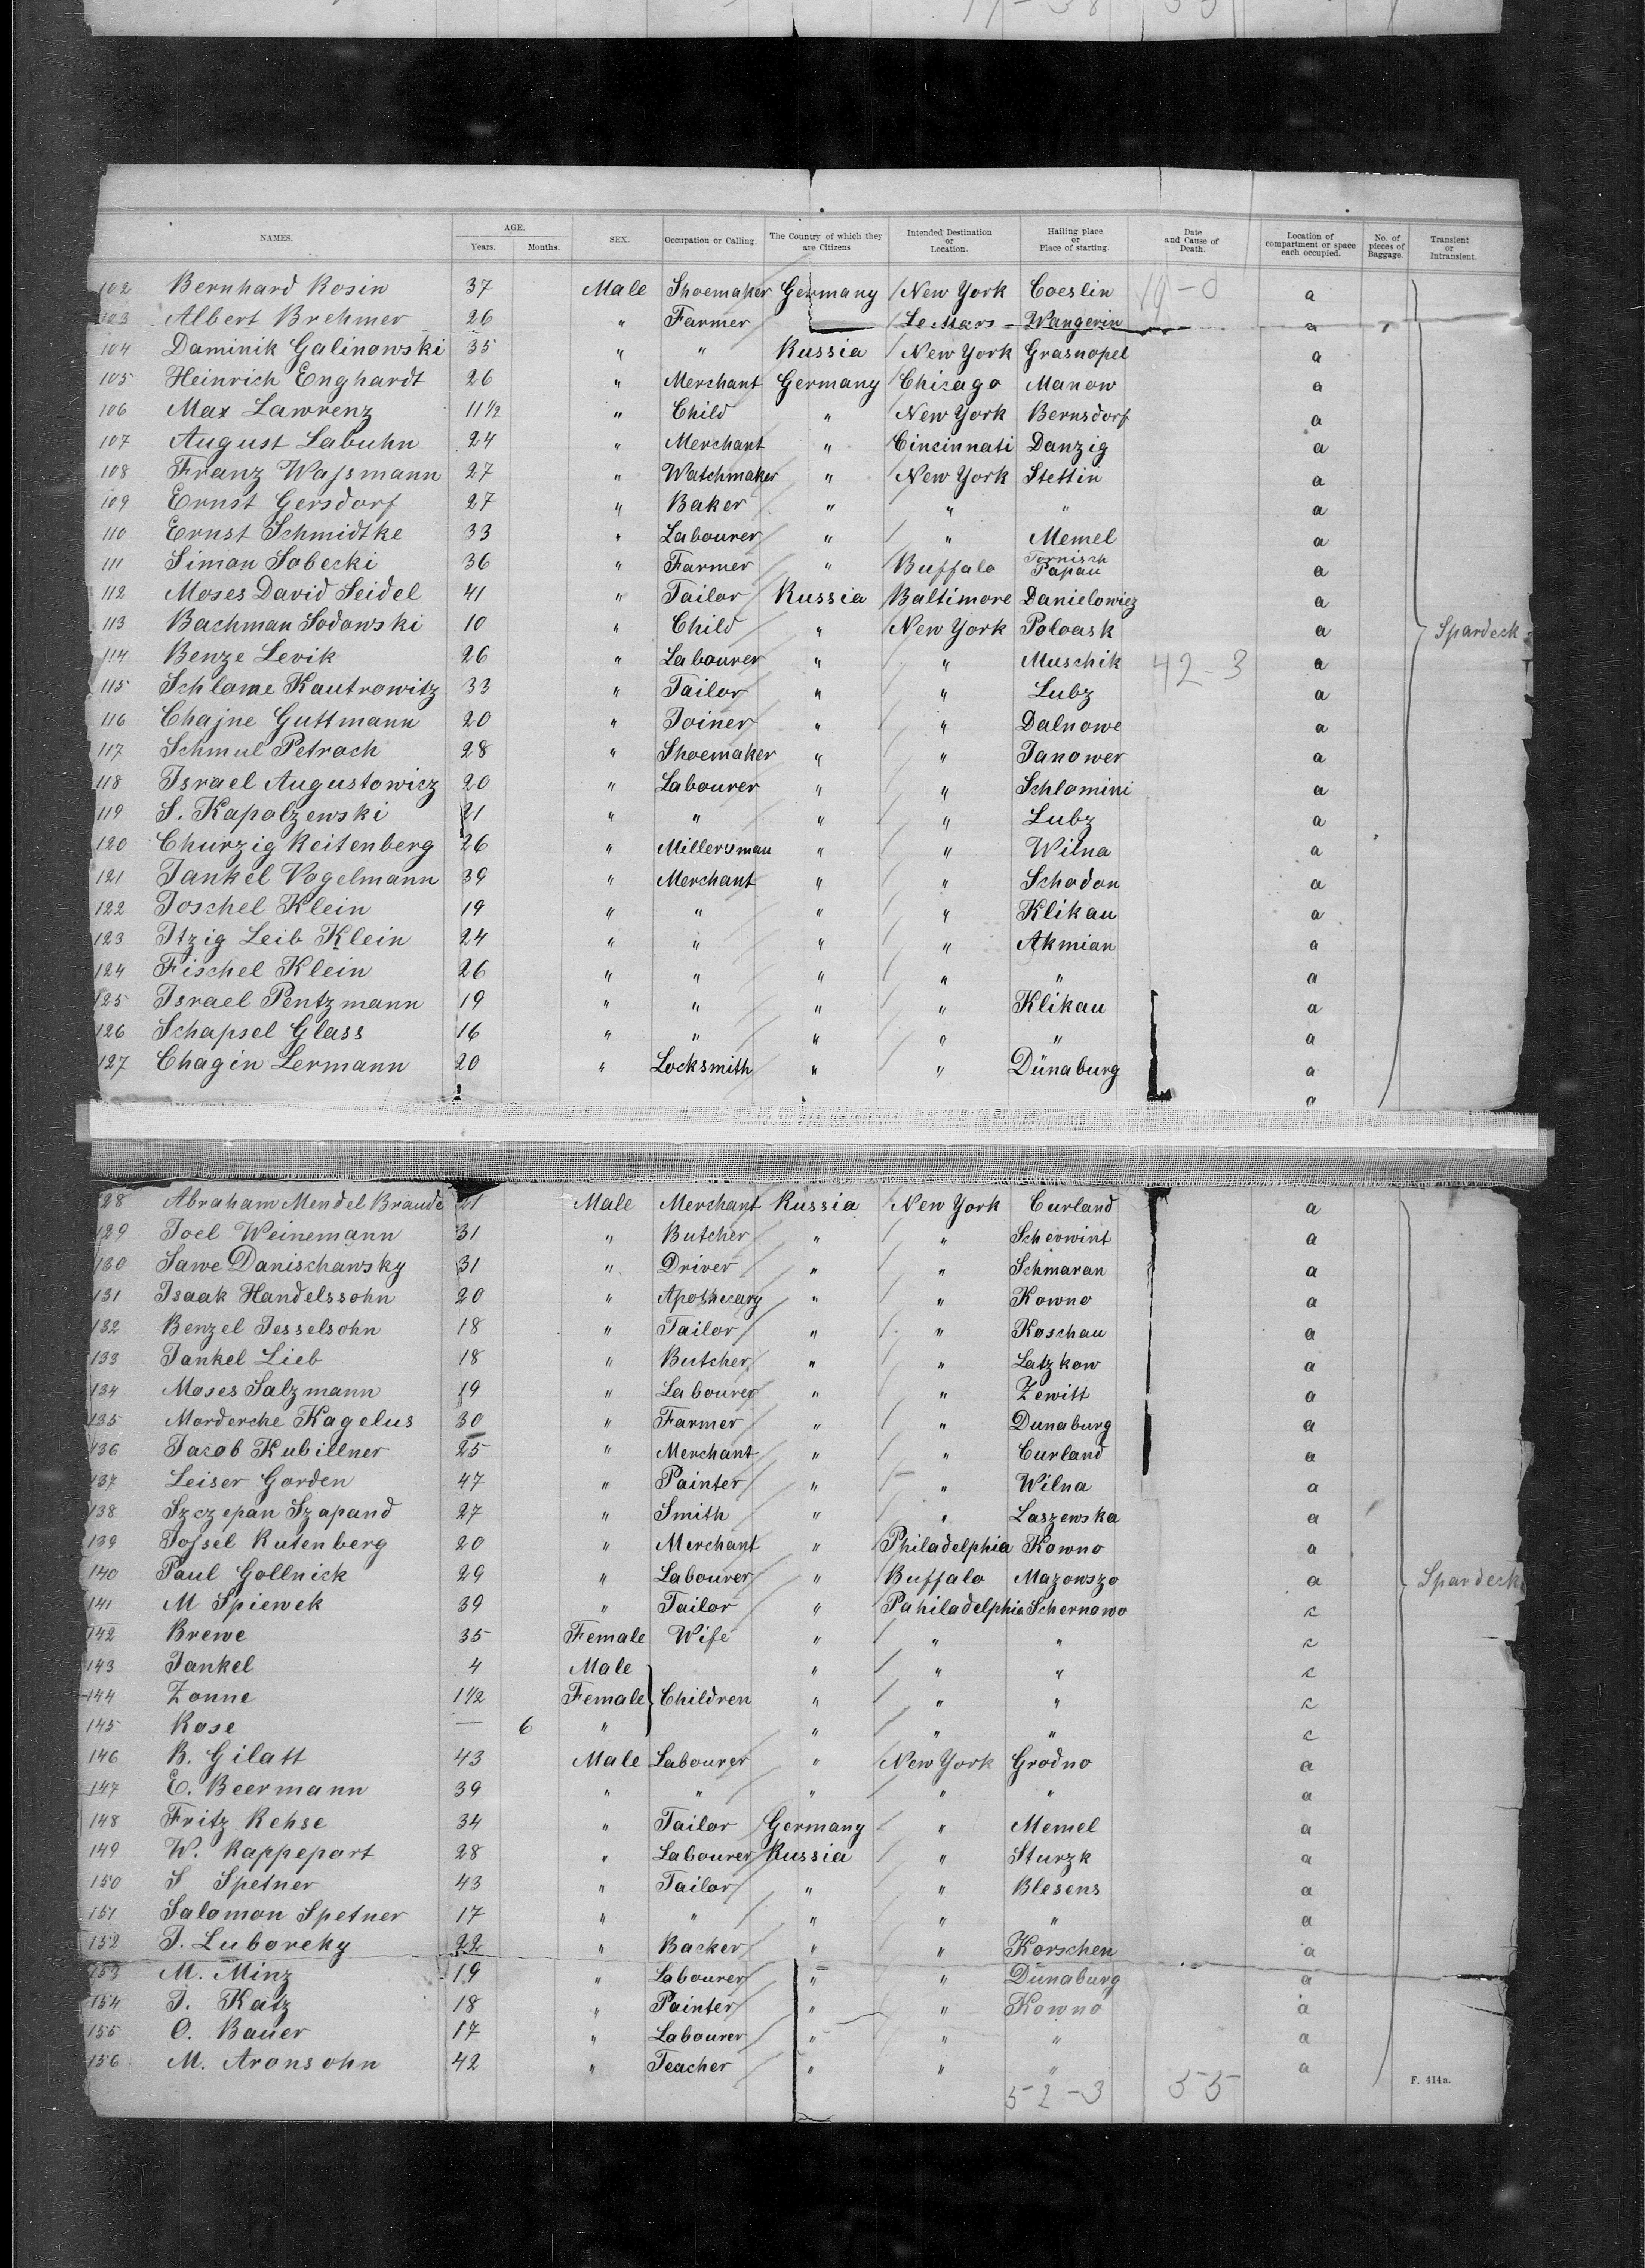 NAMES. AGE. Years. Months. SEX. Occupation or Calling. The Country of which they are Citizens Intended Destination or Location. Hailing place or Place of starting. Date and Cause of Death. Location of compartment or space each occupied. No. of pieces of Baggage. Transient or Intransient.
102 Bernhard Rosin 37 Male Shoemaker Germany New York Coeslin 19-0 a
103 Albert Brehmer 26 " Farmer Le Mars Wangerin a
104 Daminik Galinowski 35 " " Russia New York Grasnopel a
105 Heinrich Enghardt 26 " Merchant Germany Chicago Manow a
106 Max Lawrenz 11½ " Child " New York Bernsdorf a
107 August Labuhn 24 " Merchant " Cincinnati Danzig a
108 Franz Wassmann 27 " Watchmaker " New York Stettin a
109 Ernst Gersdorf 27 " Baker " " " a
110 Ernst Schmidtke 33 " Labourer " " Memel a
111 Simon Sobecki 36 " Farmer " Buffalo Tornisch Papau a
112 Moses David Seidel 41 " Tailor Russia Baltimore Danielowicz a
113 Bachman Sodowski 10 " Child " New York Poloask a Spardeck
114 Benze Levik 26 " Labourer " " Muschik 42-3 a
115 Schlome Kautrowitz 33 " Tailor " " Lubz a
116 Chajne Guttmann 20 " Joiner " " Dalnowe a
117 Schmul Petrack 28 " Shoemaker " " Janower a
118 Israel Augustowicz 20 " Labourer " " Schlomini a
119 S. Kapolzewski 21 " " " " Lubz a
120 Churzig Reitenberg 26 " Millersman " " Wilna a
121 Jankel Vogelmann 39 " Merchant " " Schodon a
122 Joschel Klein 19 " " " " Klikau a
123 Itzig Leib Klein 24 " " " " Akmian a
124 Fischel Klein 26 " " " " " a
125 Israel Pentzmann 19 " " " " Klikau a
126 Schapsel Glass 16 " " " " " a
127 Chagin Lermann 20 " Locksmith " " Dünaburg a
a
128 Abraham Mendel Braude 21 Male Merchant Russia New York Curland a
129 Joel Weinemann 31 " Butcher " " Scherwint a
130 Sawe Danischawsky 31 " Driver " " Schmaran a
131 Isaak Handelssohn 20 " Apothecary " " Kowno a
132 Benzel Jesselsohn 18 " Tailor " " Koschau a
133 Jankel Lieb 18 " Butcher " " Latzkow a
134 Moses Salzmann 19 " Labourer " " Zewitt a
135 Morderche Kagelus 30 " Farmer " " Dunaburg a
136 Jacob Kubillner 25 " Merchant " " Curland a
137 Leiser Gorden 47 " Painter " " Wilna a
138 Szczepan Szapand 27 " Smith " " Laszewska a
139 Jossel Rutenberg 20 " Merchant " Philadelphia Kowno a
140 Paul Gollnick 29 " Labourer " Buffalo Mazowszo a Spardeck
141 M Spiewek 39 " Tailor " Pahiladelphia Schernowo c
142 Brewe 35 Female Wife " " " c
143 Jankel 4 Male " " " c
144 Zonne 1½ Female Children " " " c
145 Rose — 6 " " " " c
146 B. Gilatt 43 Male Labourer " New York Grodno a
147 E. Beermann 39 " " " " " a
148 Fritz Rehse 34 " Tailor Germany " Memel a
149 W. Rappeport 28 " Labourer Russia " Sturzk a
150 S Spetner 43 " Tailor " " Blesens a
151 Salomon Spetner 17 " " " " " a
152 J. Luboreky 22 " Backer " " Korschen a
153 M. Minz 19 " Labourer " " Dünaburg a
154 J. Katz 18 " Painter " " Kowno a
155 O. Bauer 17 " Labourer " " " a
156 M. Aronsohn 42 " Teacher " " " a
52-3 55 F. 414a.